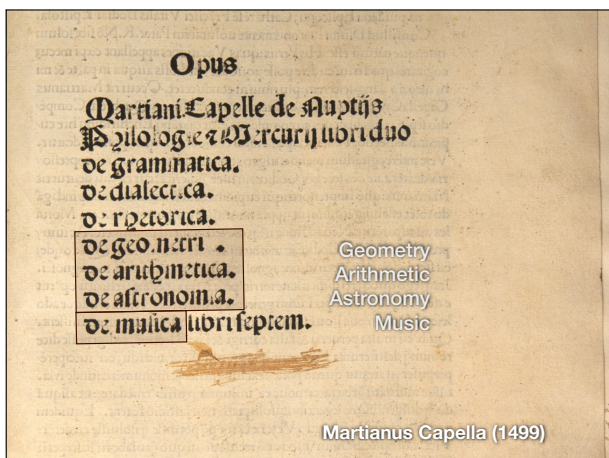 Opus
Martiani Capelle de Nuptijs
Philologie & Mercurij libri duo
de grammatica.
de dialectica.
de rhetorica.
de geometri .
de arithmetica.
de astronomia.
de musica libri septem.
Geometry
Arithmetic
Astronomy
Music
Martianus Capella (1499)